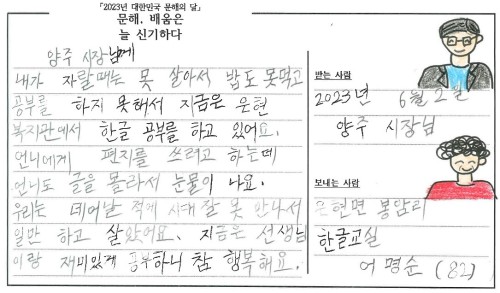 「2023년 대한민국 문해의 달」
문해, 배움은
늘 신기하다
양주 시장님께
내가 자랄때는 못 살아서 밥도 못먹고
공부를 하지 못해서 지금은 은현
복지관에서 한글 공부를 하고 있어요.
언니에게 편지를 쓰려고 하는데
언니도 글을 몰라서 눈물이 나요.
우리는 데어날 적에 시대 잘 못 만나서
일만 하고 살았어요. 지금은 선생님
이랑 재미있게 공부하니 참 행복해요.
받는 사람
2023년 6월 2일
양주 시장님
보내는 사람
은현면 봉암리
한글교실
어 명순 (82)